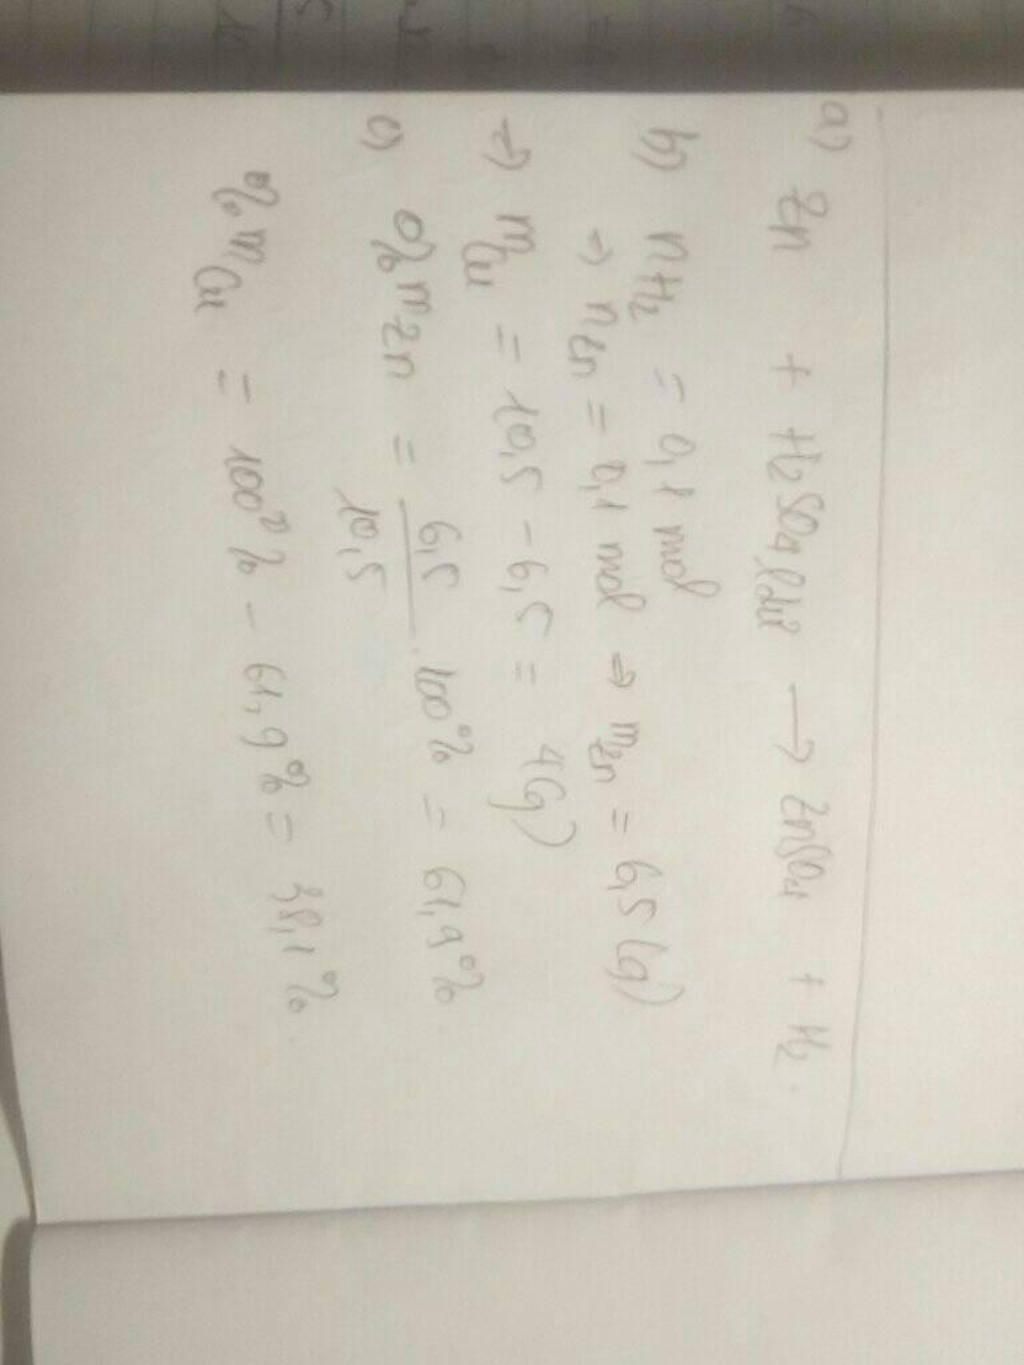 a) Zn + H2SO4 loãng → ZnSO4 + H2.
b) nH2 = 0,1 mol
→ nZn = 0,1 mol ⇒ mZn = 6,5 (g)
→ mCu = 10,5 - 6,5 = 4(g)
c) %mZn = 6,5/10,5 . 100% = 61,9%
%mCu = 100% - 61,9% = 38,1%.